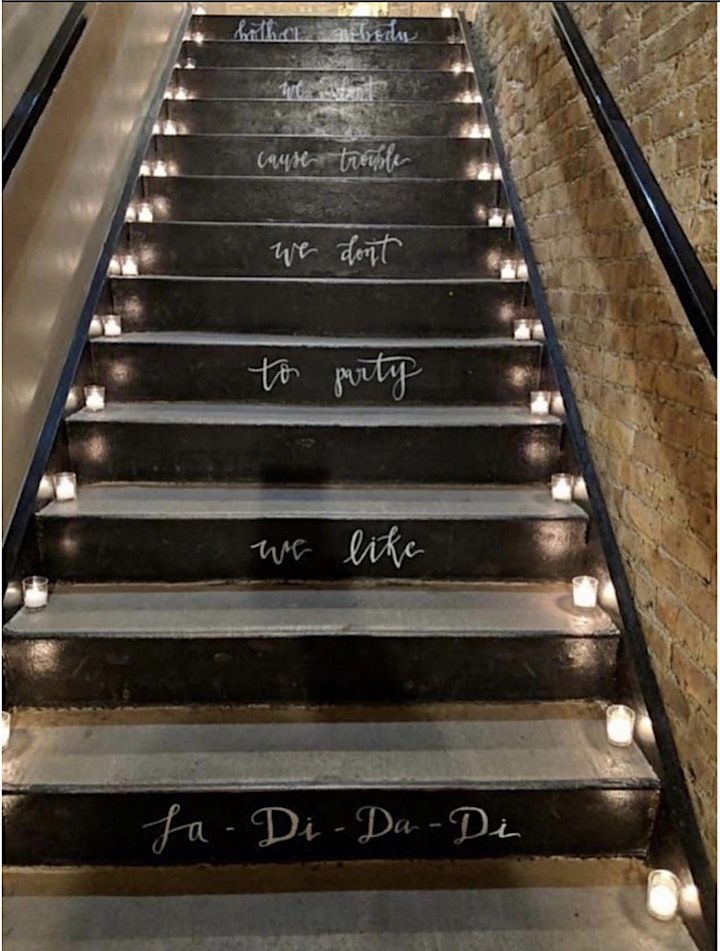 La-Di-Da-Di
we like
to party
we dont
cause trouble
we dont
bother nobody